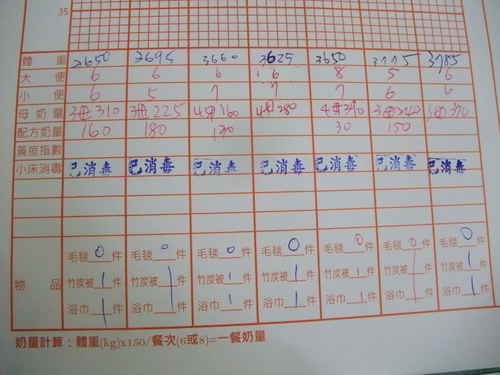 35
體重 2650 2695 3660 3625 3650 3775 3785
大便 6 6 6 6 8 5 6
小便 6 5 7 7 7 6 6
母奶量 3毋310 3毋225 160 280 4毋390 370
配方奶量 160 180 30 150
黃疸指數
小床消毒 已消毒 已消毒 已消毒 已消毒 已消毒 已消毒 已消毒
物品 毛毯0件 毛毯0件 毛毯0件 毛毯0件 毛毯0件 毛毯0件 毛毯0件
竹炭被1件 竹炭被1件 竹炭被1件 竹炭被1件 竹炭被1件 竹炭被1件 竹炭被1件
浴巾1件 浴巾1件 浴巾1件 浴巾1件 浴巾1件 浴巾1件 浴巾1件
奶量計算：體重(kg)x150/餐次(6或8)=一餐奶量